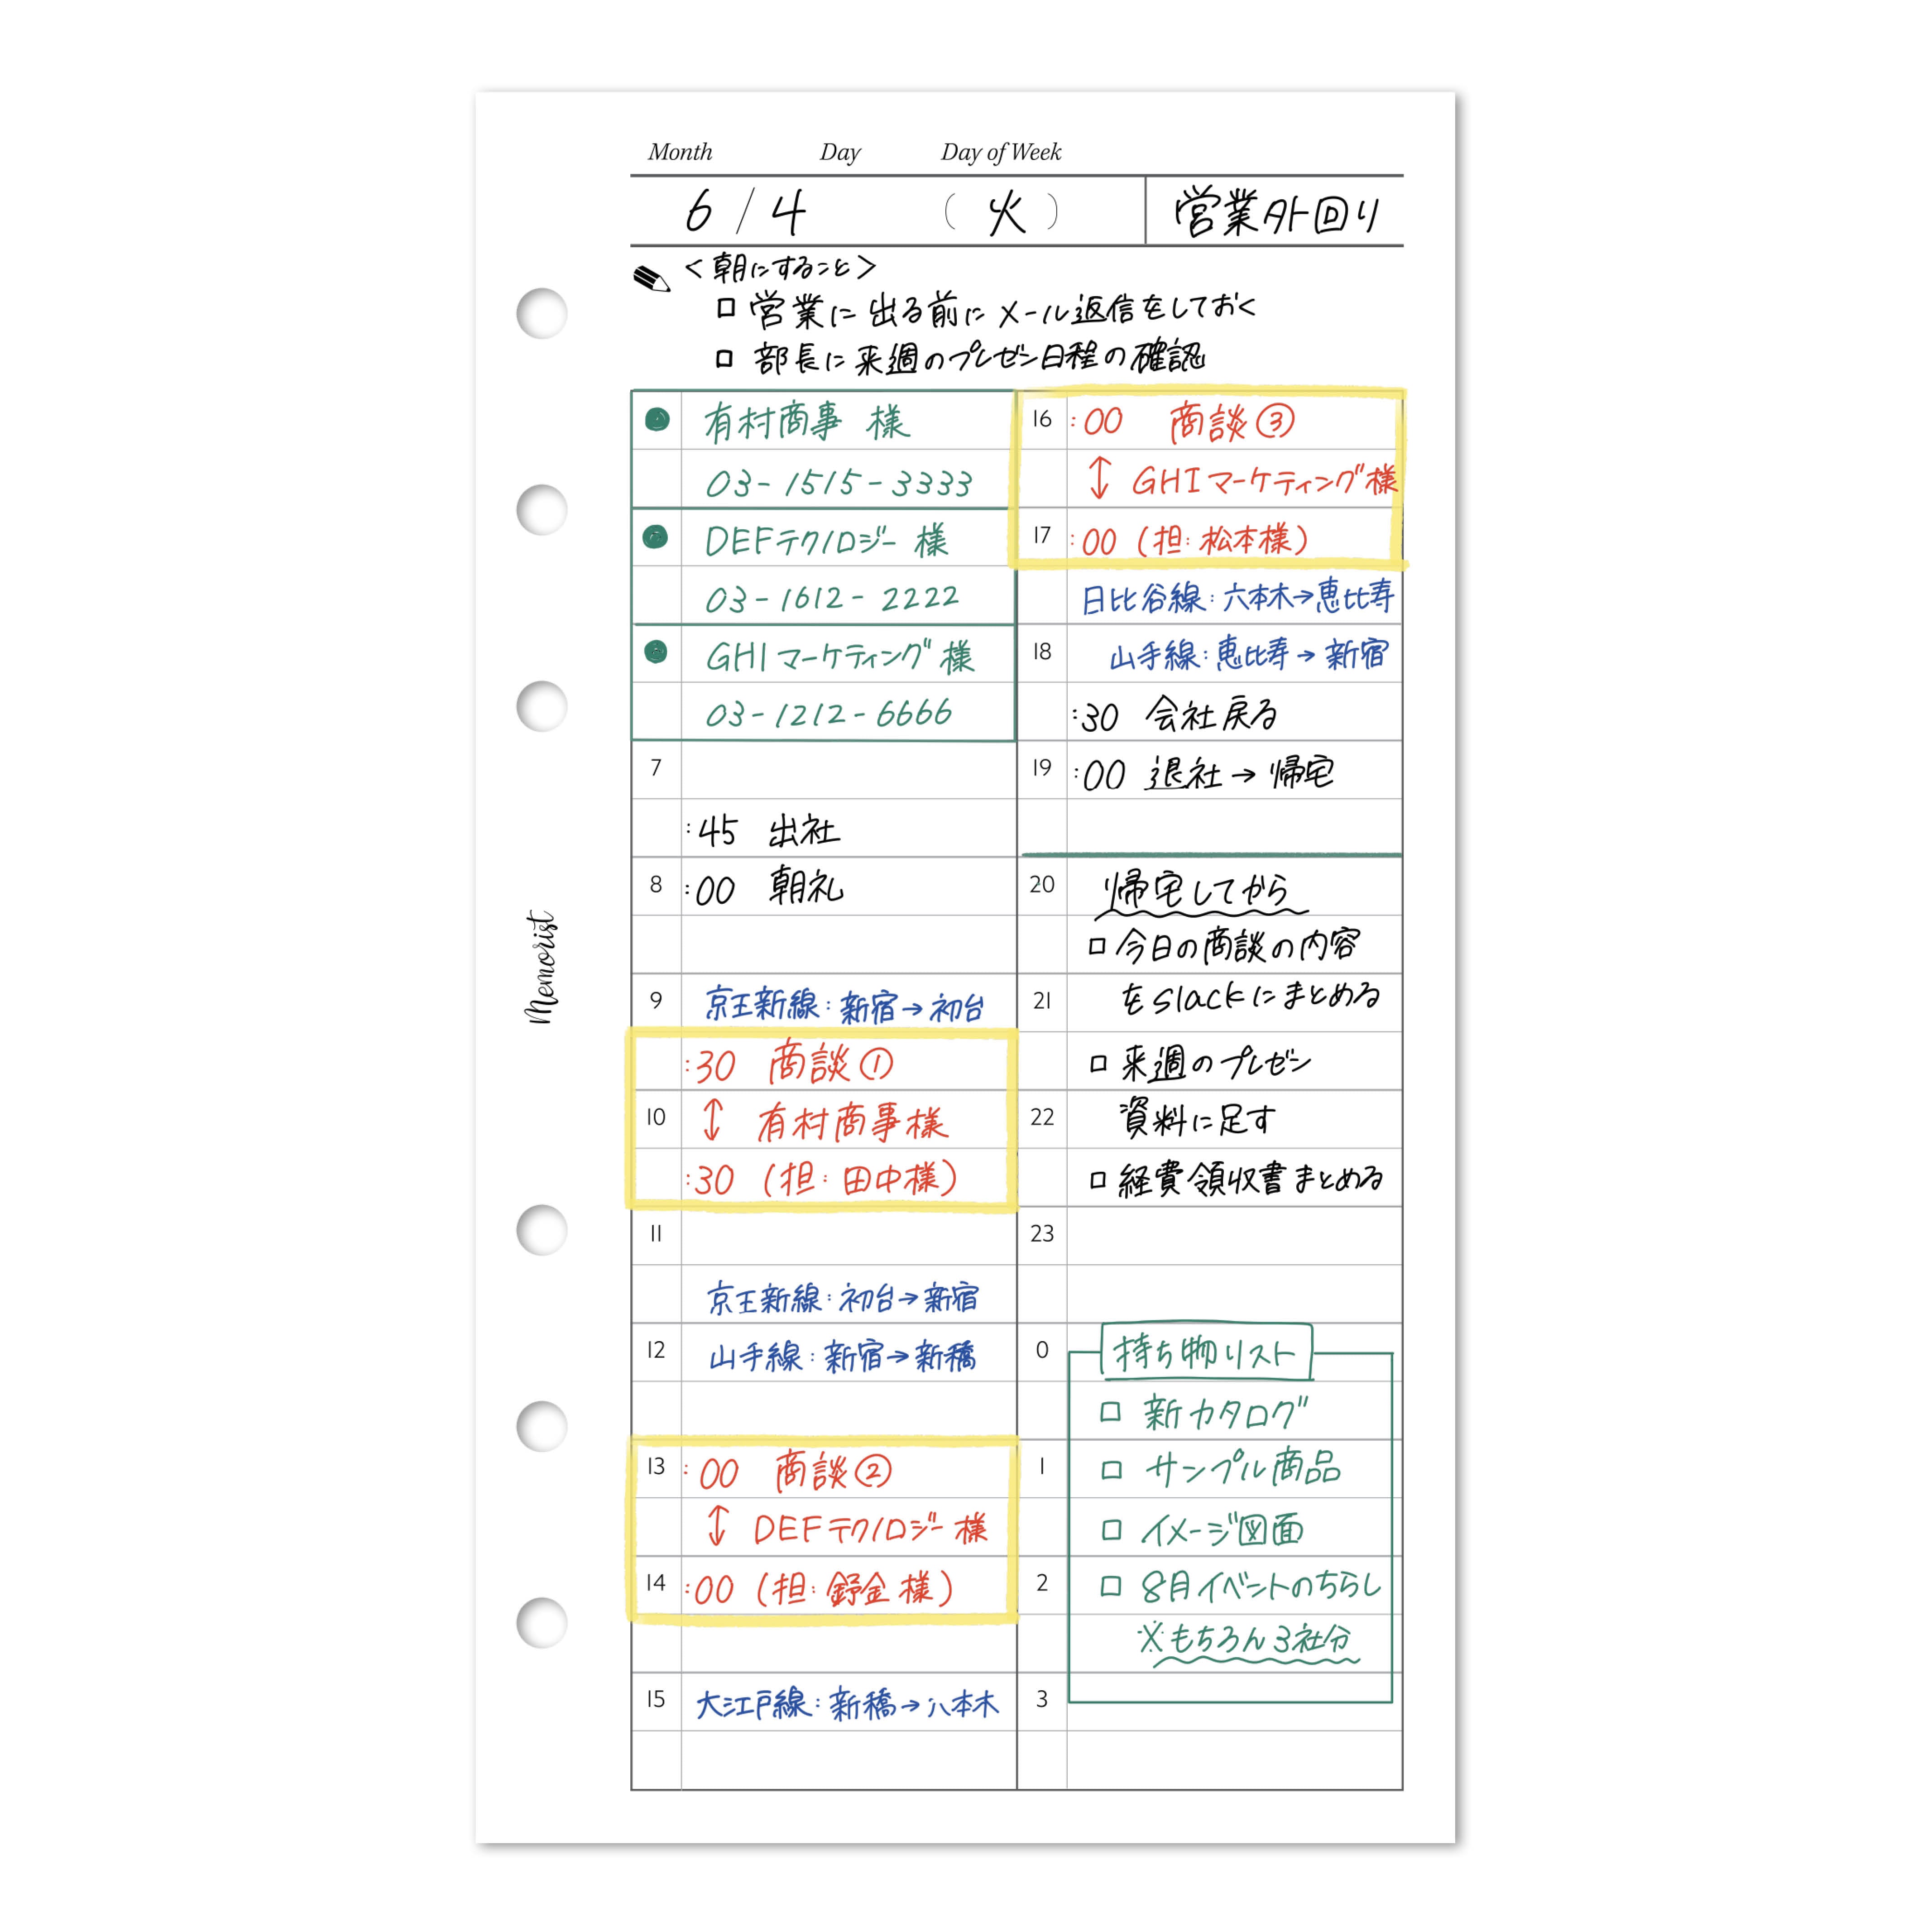 Month Day Day of Week
6 / 4 ( 火 ) 営業外回り
<朝にすること>
□ 営業に出る前にメール返信をしておく
□ 部長に来週のプレゼン日程の確認
有村商事 様
03-1515-3333
DEFテクノロジー 様
03-1612-2222
GHIマーケティング 様
03-1212-6666
7
:45 出社
8 :00 朝礼
9 京王新線:新宿→初台
:30 商談①
10 ↕ 有村商事様
:30 (担:田中様)
11
京王新線:初台→新宿
12 山手線:新宿→新橋
13 :00 商談②
↕ DEFテクノロジー 様
14 :00 (担: 様)
15 大江戸線:新橋→六本木
16 :00 商談③
↕ GHIマーケティング様
17 :00 (担:松本様)
日比谷線:六本木→恵比寿
18 山手線:恵比寿→新宿
:30 会社戻る
19 :00 退社→帰宅
20 帰宅してから
□ 今日の商談の内容
21 をslackにまとめる
□ 来週のプレゼン
22 資料に足す
□ 経費領収書まとめる
23
0 持ち物リスト
□ 新カタログ
1 □ サンプル商品
□ イメージ図面
2 □ 8月イベントのちらし
※もちろん3社分
3
Memorist